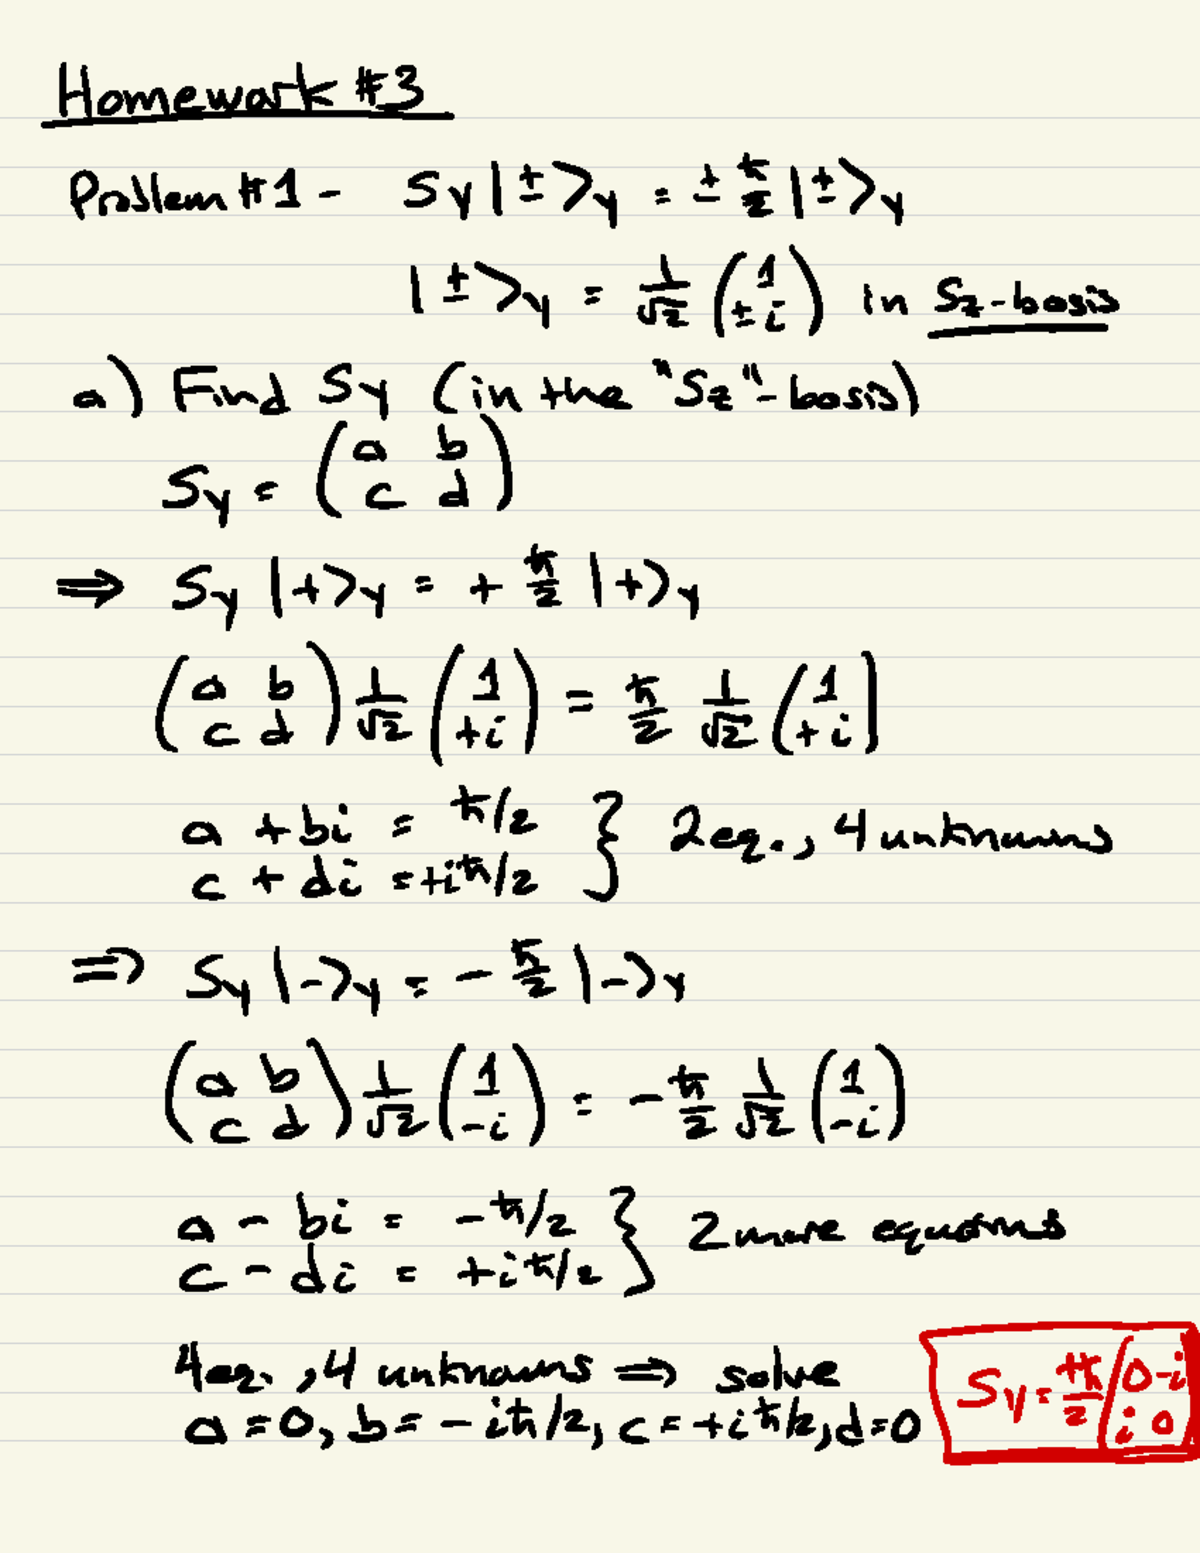 Homework #3
Problem #1 - Sy |±>y = ± ħ/2 |±>y
|±>y = 1/√2 (1 ±i) in Sz-basis
a) Find Sy (in the "Sz"-basis)
Sy = (a b c d)
⇒ Sy |+>y = + ħ/2 |+>y
(a b c d) 1/√2 (1 +i) = ħ/2 1/√2 (1 +i)
a + bi = ħ/2
c + di = +iħ/2 } 2 eq., 4 unknowns
⇒ Sy |->y = - ħ/2 |->y
(a b c d) 1/√2 (1 -i) = - ħ/2 1/√2 (1 -i)
a - bi = -ħ/2
c - di = +iħ/2 } 2 more equations
4 eq., 4 unknowns ⇒ solve
a = 0, b = -iħ/2, c = +iħ/2, d = 0
Sy = +ħ/2 (0 -i i 0)